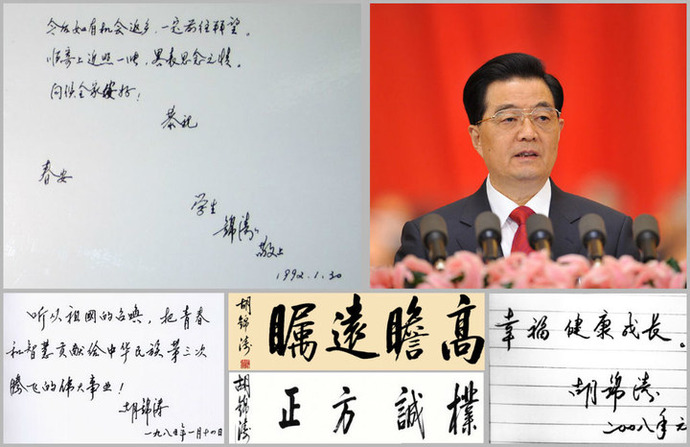 今后如有机会返乡，一定前往拜望。
顺寄上近照一帧，畧表思念之情。
问候全家安好！
恭祝
春安
学生
锦涛
敬上
1992.1.30
听从祖国的召唤，把青春
和智慧贡献给中华民族第三次
腾飞的伟大事业！
胡锦涛
一九八五年一月十四日
高瞻遠矚
胡錦濤
樸誠方正
胡錦濤
幸福健康成长。
胡锦涛
二〇〇八年元